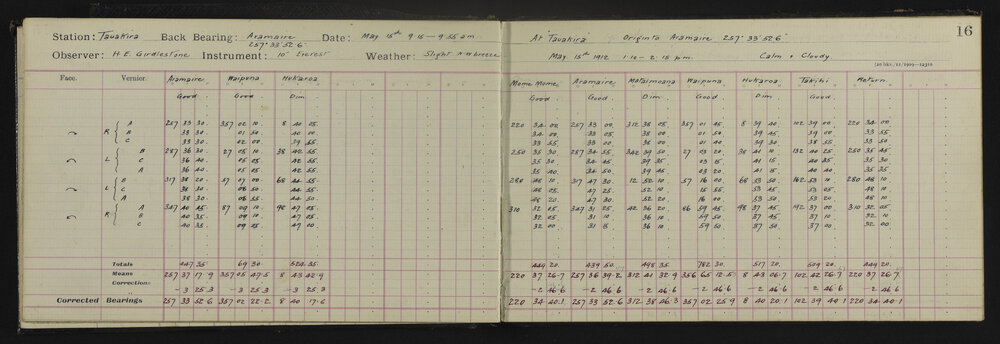 Station: Tauakira Back Bearing: Aramaire 257° 33' 52·6 Date: May 15th 9·15 – 9·55 am
Observer: H.E. Girdlestone Instrument: 10" Everest Weather: Slight N.W breeze
Face. Vernier. Aramaire Waipuna Hukaroa
Good Good Dim
R A 257 33 30 357 02 10 8 40 05
B 33 30 01 50 40 00
C 33 30 02 00 39 55
L B 287 36 30 27 05 10 38 42 55
C 36 40 05 05 42 55
A 36 40 05 05 42 55
L B 317 38 20 57 07 00 68 44 55
C 38 30 06 50 44 55
A 38 30 06 55 44 50
R A 347 40 45 87 09 10 98 47 05
B 40 35 09 10 47 05
C 40 35 09 05 47 00
Totals 447 35 69 30 524 35
Means 257 37 17·9 357 05 47·5 8 43 42·9
Corrections –3 25·3 –3 25·3 –3 25·3
Corrected Bearings 257 33 52·6 357 02 22·2 8 40 17·6
16
At "Tauakira" Origin to Aramaire 257° 33' 52·6
May 15th 1912 1·10 – 2·15 p.m. Calm & Cloudy
Mome Mome Aramaire Mataimoana Waipuna Hukaroa Takihi Return
Good Good Dim Good Dim Good
220 34 00 257 33 00 312 38 05 357 01 45 8 39 40 102 39 00 220 34 00
34 00 33 05 38 00 01 50 39 45 39 00 33 55
33 55 33 00 38 00 01 40 39 30 38 55 33 50
250 35 30 287 34 55 342 39 50 27 03 20 38 41 10 132 40 25 250 35 45
35 30 34 45 39 35 03 15 41 15 40 35 35 30
35 40 34 50 39 45 03 20 41 15 40 40 35 35
280 48 10 317 47 30 12 52 10 57 16 00 68 53 50 162 53 10 280 48 10
48 05 47 25 52 10 15 55 53 45 53 05 48 10
48 20 47 30 52 20 16 00 53 50 53 20 48 20
310 32 05 347 31 25 42 36 20 86 59 45 98 37 45 192 37 00 310 32 05
32 05 31 10 36 10 59 50 37 45 37 10 32 10
32 00 31 15 36 10 59 50 37 50 37 00 32 00
449 20 439 50 498 35 782 30 517 20 509 20 449 20
220 37 26·7 257 36 39·2 312 41 32·9 356 65 12·5 8 43 06·7 102 42 26·7 220 37 26·7
–2 46·6 –2 46·6 –2 46·6 –2 46·6 –2 46·6 –2 46·6 –2 46·6
220 34 40·1 257 33 52·6 312 38 46·3 357 02 25·9 8 40 20·1 102 39 40·1 220 34 40·1